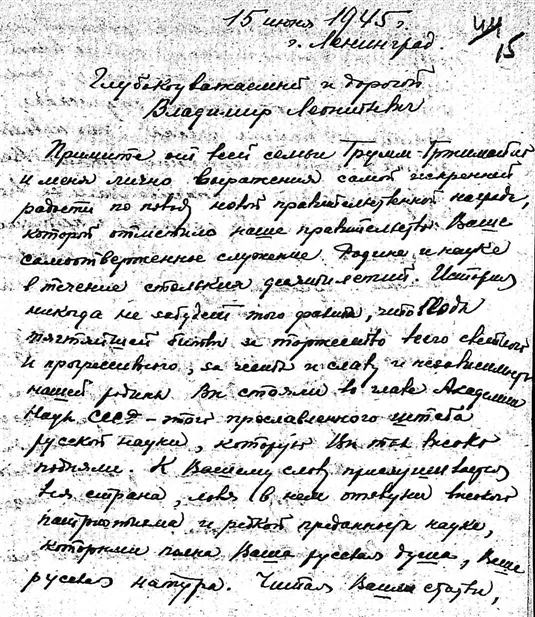 15 июня 1945 г.
г. Ленинград.
15
Глубокоуважаемый и дорогой
Владимир Леонтьевич
Примите от всей семьи Грумм-Гржимайло
и меня лично выражения самой искренней
радости по поводу новой правительственной награде,
которой отметило наше правительство Ваше
самоотверженное служение Родине и науке
в течение стольких десятилетий. История
никогда не забудет того факта, что в годы
тягчайшей битвы за торжество всего светлого
и прогрессивного, за честь и славу и независимость
нашей родины Вы стояли во главе Академии
Наук СССР – этого прославленного штаба
русской науки, которую Вы так высоко
подняли. К Вашему слову прислушивается
вся страна, ловя в нем отзвуки высокого
патриотизма и редкой преданности науке,
которыми полна Ваша русская душа, Ваша
русская натура. Читая Ваши статьи,